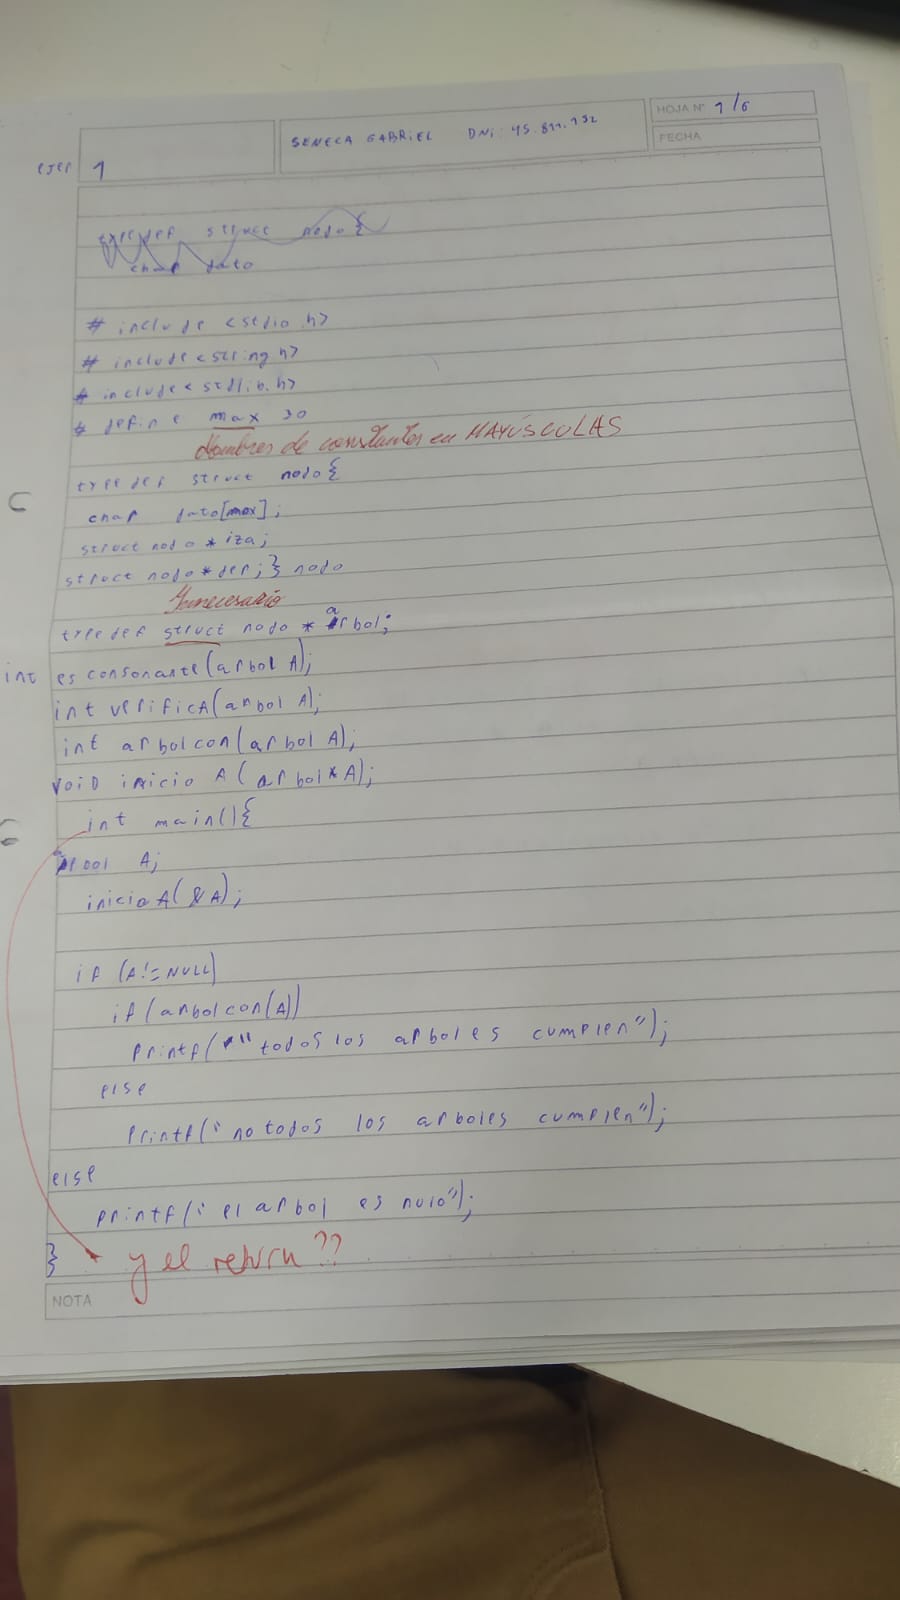 HOJA N° 1/6
SENECA GABRIEL DNI: 45.811.132
FECHA
ejer 1
typedef struct nodo {
char dato
# include <stdio.h>
# include <string.h>
# include <stdlib.h>
# define max 30
Nombres de constantes en MAYÚSCULAS
typedef struct nodo {
char dato[max];
struct nodo * izq;
struct nodo * der; } nodo
Innecesario
typedef struct nodo * arbol;
int esconsonante(arbol A);
int verificA(arbol A);
int arbolcon(arbol A);
void inicio A(arbol * A);
int main(){
arbol A;
inicio A(&A);
if (A!=NULL)
if (arbolcon(A))
printf("todos los arboles cumplen");
else
printf("no todos los arboles cumplen");
else
printf("el arbol es nulo");
} y el return??
NOTA